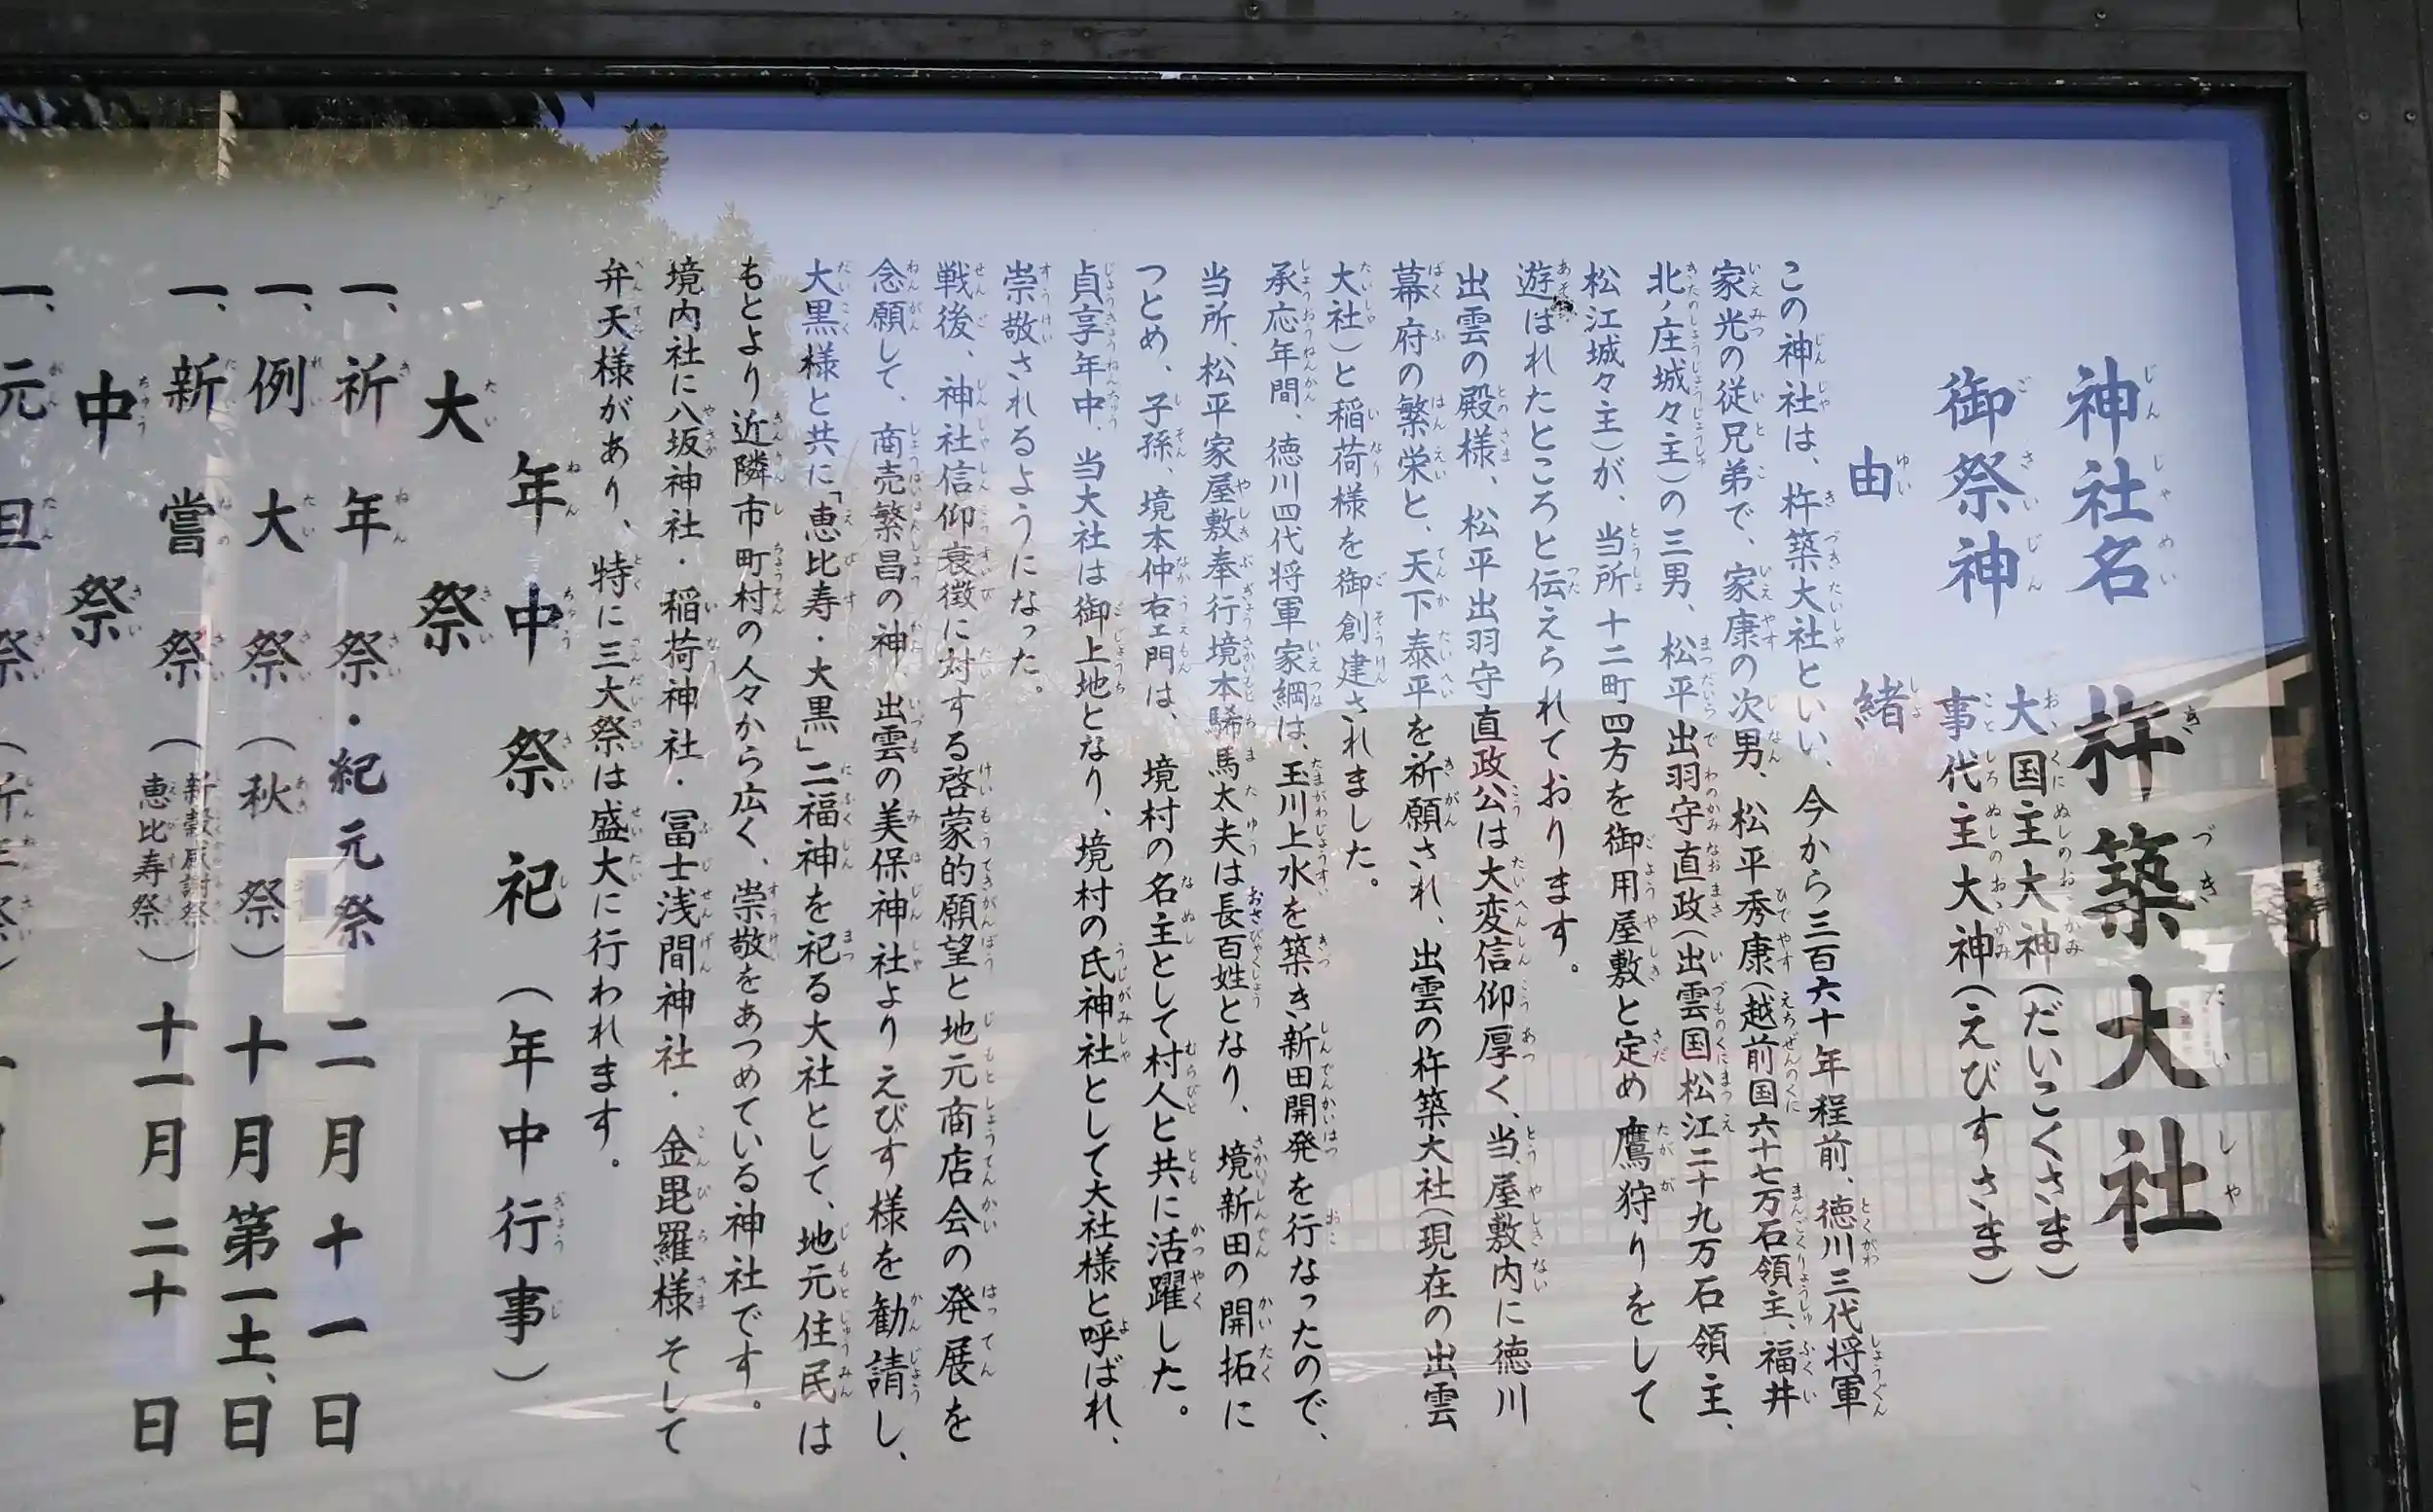 神社名 杵築大社
御祭神 大国主大神(だいこくさま)
事代主大神(えびすさま)
由緒
この神社は、杵築大社といい、今から三百六十年程前、徳川三代将軍
家光の従兄弟で、家康の次男、松平秀康(越前国六十七万石領主、福井
北ノ庄城々主)の三男、松平出羽守直政(出雲国松江二十九万石領主、
松江城々主)が、当所十二町四方を御用屋敷と定め鷹狩りをして
遊ばれたところと伝えられております。
出雲の殿様、松平出羽守直政公は大変信仰厚く、当、屋敷内に徳川
幕府の繁栄と、天下泰平を祈願され、出雲の杵築大社(現在の出雲
大社)と稲荷様を御創建されました。
承応年間、徳川四代将軍家綱は、玉川上水を築き新田開発を行なったので、
当所、松平家屋敷奉行境本 馬太夫は長百姓となり、境新田の開拓に
つとめ、子孫、境本仲右ェ門は、境村の名主として村人と共に活躍した。
貞享年中、当大社は御上地となり、境村の氏神社として大社様と呼ばれ、
崇敬されるようになった。
戦後、神社信仰衰微に対する啓蒙的願望と地元商店会の発展を
念願して、商売繁昌の神、出雲の美保神社よりえびす様を勧請し、
大黒様と共に「恵比寿・大黒」二福神を祀る大社として、地元住民は
もとより近隣市町村の人々から広く、崇敬をあつめている神社です。
境内社に八坂神社・稲荷神社・冨士浅間神社・金毘羅様そして
弁天様があり、特に三大祭は盛大に行われます。
年中祭祀(年中行事)
大祭
一、祈年祭・紀元祭 二月十一日
一、例大祭(秋祭) 十月第一土、日
一、新嘗祭(新穀感謝祭 恵比寿祭) 十一月二十日
中祭
一、元旦祭